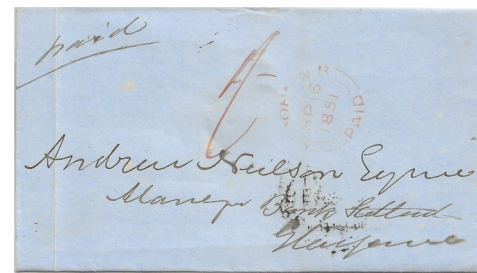 paid
SP 16
1851
PAID
Andrew Neilson Esqre
Manager Bank Scotland
Glasgow